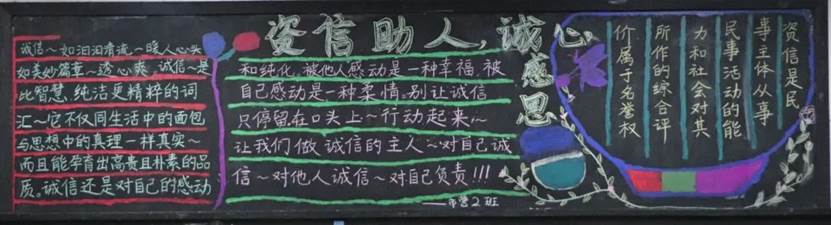 资信助人，诚心感恩
诚信～如汩汩清流～暖人心头
如美妙篇章～透心爽 诚信～是
比智慧 纯洁更精粹的词
汇～它不仅同生活中的面包
与思想中的真理一样真实～
而且能孕育出高贵且朴素的品
质。诚信还是对自己的感动
和纯化，被他人感动是一种幸福，被
自己感动是一种柔情，别让诚信
只停留在口头上～行动起来～
让我们做 诚信的主人～对自己诚
信～对他人诚信～对自己负责!!!
——市营2班
资信是民
事主体从事
民事活动的能
力和社会对其
所作的综合评
价属于名誉权